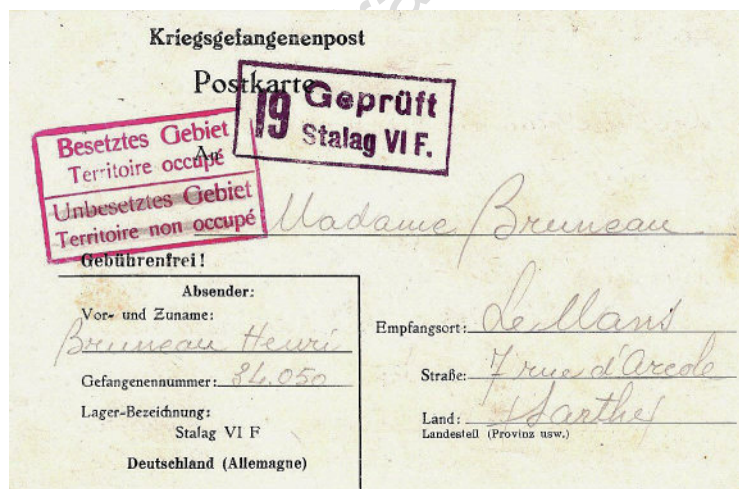 Kriegsgefangenenpost
Postkarte
19 Geprüft
Stalag VI F.
Besetztes Gebiet
Territoire occupé
Unbesetztes Gebiet
Territoire non occupé
An
Madame Bruneau
Gebührenfrei!
Absender:
Vor- und Zuname:
Bruneau Henri
Gefangenennummer: 34.050
Lager-Bezeichnung:
Stalag VI F
Deutschland (Allemagne)
Empfangsort: Le Mans
Straße: 7 rue d'Arcole
Land: (Sarthe)
Landesteil (Provinz usw.)